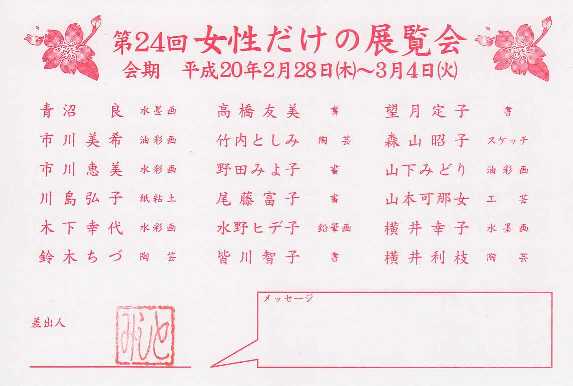 第24回 女性だけの展覧会
会期 平成20年2月28日(木)～3月4日(火)
青沼良 水墨画
市川美希 油彩画
市川恵美 水彩画
川島弘子 紙粘土
木下幸代 水彩画
鈴木ちづ 陶芸
高橋友美 書
竹内としみ 陶芸
野田みよ子 書
尾藤富子 書
水野ヒデ子 鉛筆画
皆川智子 書
望月定子 書
森山昭子 スケッチ
山下みどり 油彩画
山本可那女 工芸
横井幸子 水墨画
横井利枝 陶芸
差出人
メッセージ